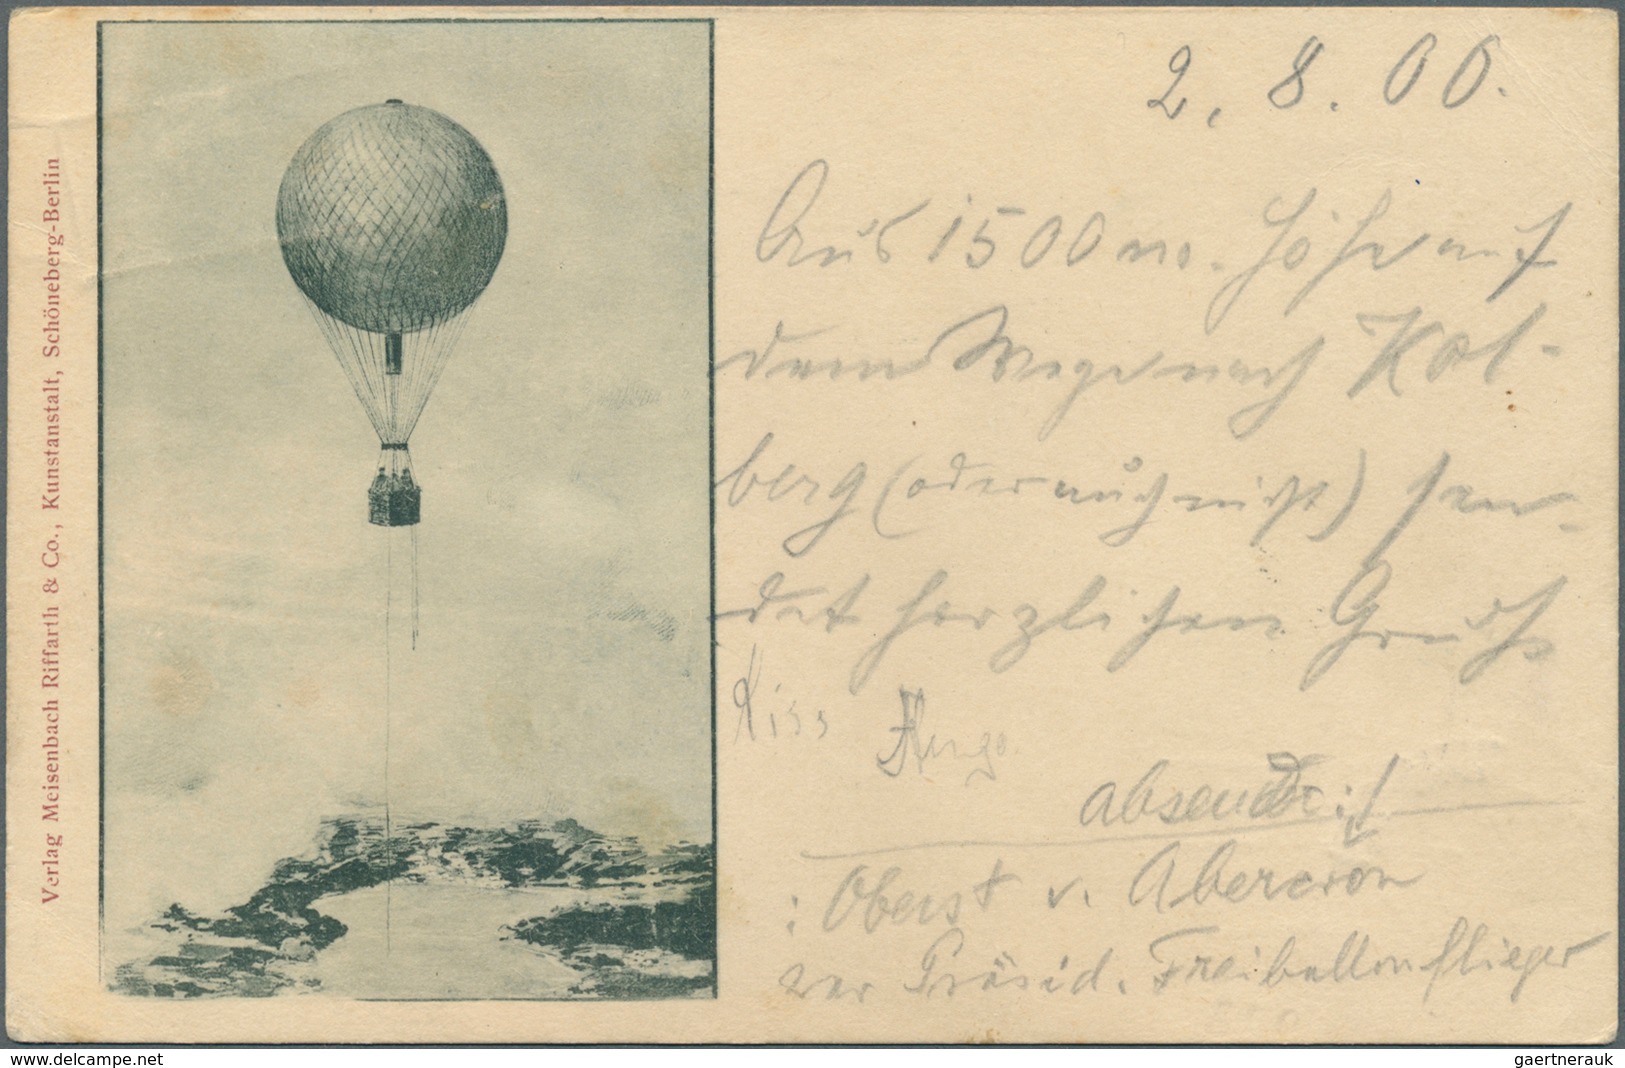 Verlag Meisenbach Riffarth & Co., Kunstanstalt, Schöneberg-Berlin
2. 8. 00.
Aus 1500 m. Höhe auf
dem Wege nach Kol-
berg (oder auch nicht) sen-
det herzlichen Gruß
absender:
: Oberst v. Abercron
Präsid. Freiballonflieger
www.delcampe.net
gaertnerauk